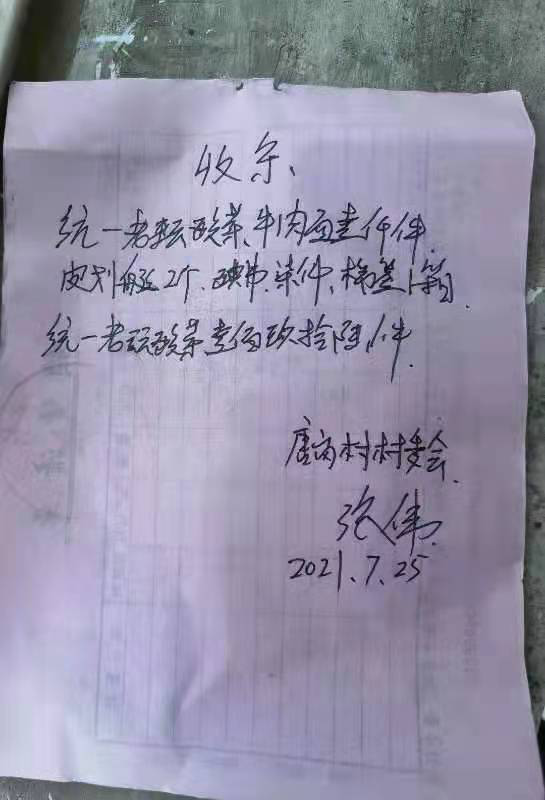 收条、
统一老坛酸菜、牛肉面壹仟件.
皮划艇2个、碘伏柒件、棉签1箱.
统一老坛酸菜壹佰玖拾陆件.
唐岗村村委会
张伟
2021.7.25